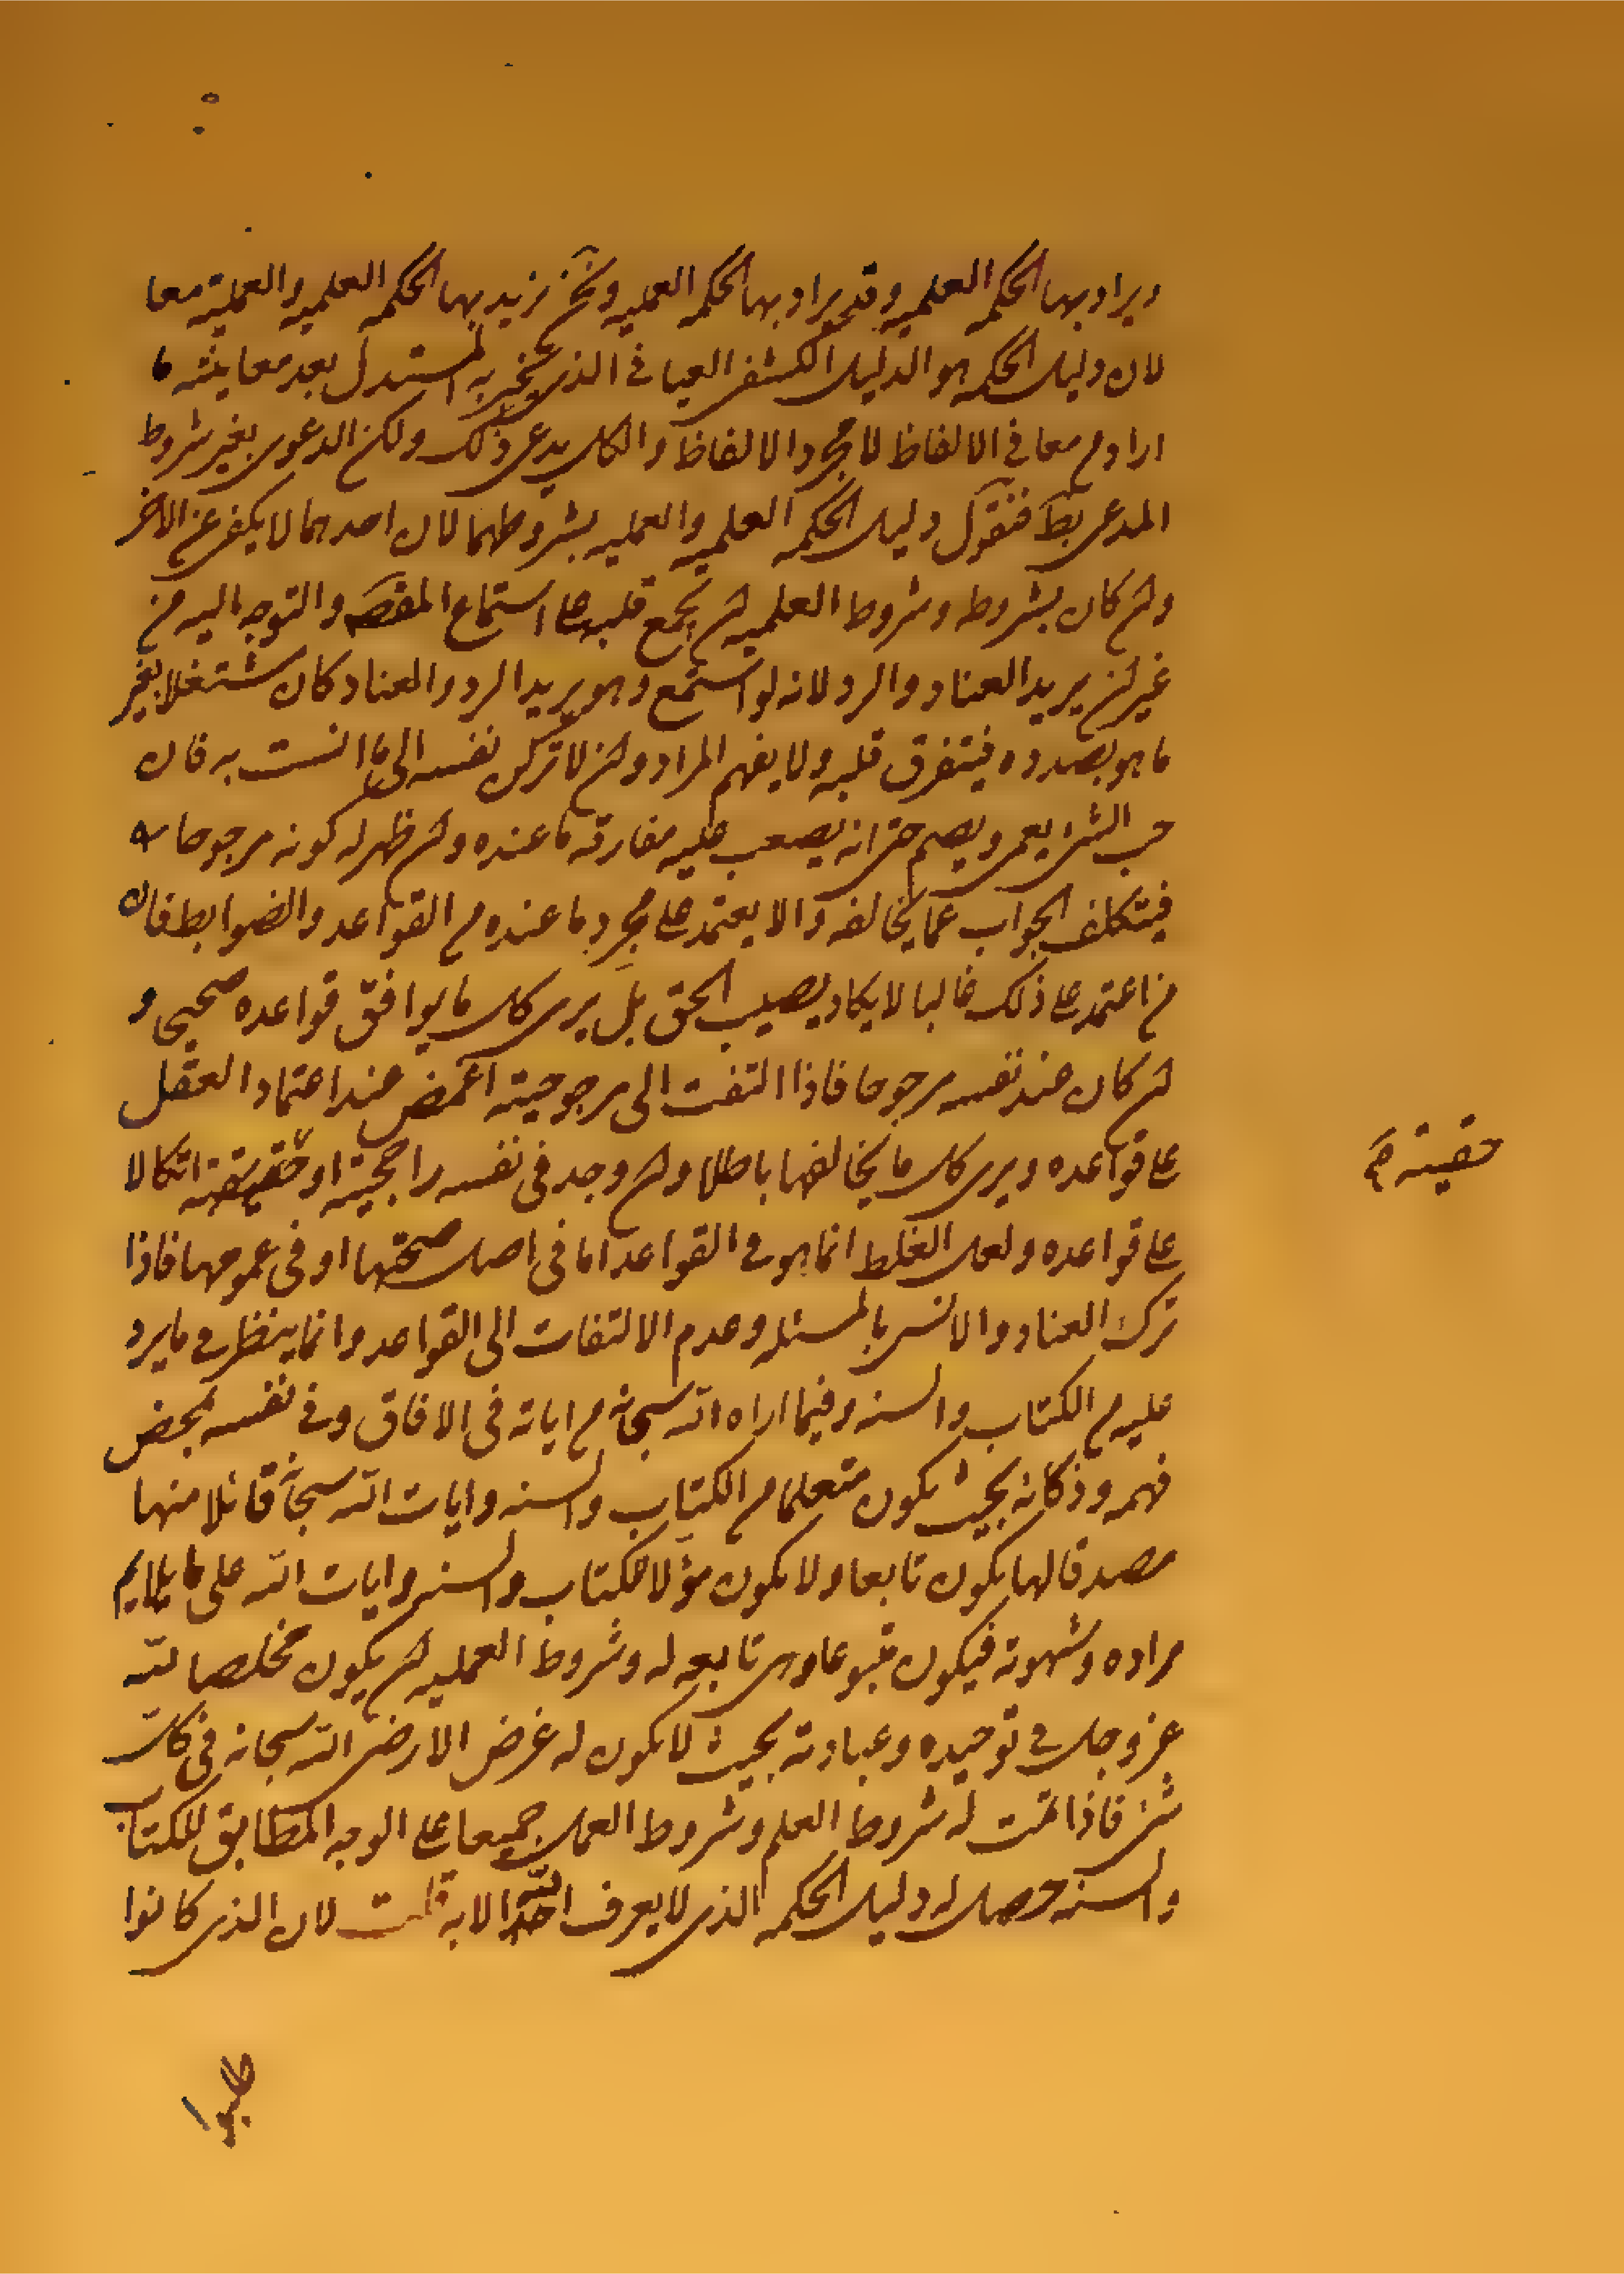 ويراد بها الحكمه العلميه وقد يراد بها الحكمه العمليه ونحن نريد بها الحكمه العلميه والعمليه معا
لان دليل الحكمه هو الدليل الكشفى العيانى الذى يخبر به المستدل بعد معاينته ما
اراد من معانى الالفاظ لا مجرد الالفاظ والكل يدعى ذلك ولكن الدعوى بغير شروط
المدعى بط فنقول دليل الحكمه العلميه والعمليه بشروطهما لان احدهما لا يكفى عن الاخر
وان كان بشروطه وشروط العلميه ان يجمع قلبه على استماع المقصد والتوجه اليه من
غير ان يريد العناد والرد لانه لو استمع وهو يريد الرد والعناد كان مشتغلا بغير
ما هو بصدده فيتفرق قلبه ولا يفهم المراد وان لا تركن نفسه الى ما انست به فان
حب الشئ يعمى ويصم حتى انه يصعب عليه مفارقه ما عنده وان ظهر له كونه مرجوحا
فيتكلف الجواب عما يخالفه والا يعتمد على مجرد ما عنده من القواعد والضوابط فان
من اعتمد على ذلك غالبا لا يكاد يصيب الحق بل يرى كل ما يوافق قواعده صحيحا و
ان كان عند نفسه مرجوحا فاذا التفت الى مرجوحيته اغمض عند اعتماد العقل
على قواعده ويرى كل ما يخالفها باطلا وان وجد فى نفسه راجحيته او حقيقته اتكالا
حقيته
على قواعده ولعل الغلط انما هو فى القواعد اما فى اصل صحتها او فى عمومها فاذا
ترك العناد والانس بالمسئله وعدم الالتفات الى القواعد وانما ينظر فى ما يرد
عليه من الكتاب والسنه وفيما اراه الله سبحانه من اياته فى الافاق وفى نفسه بمحض
فهمه وذكائه بحيث يكون متعلما من الكتاب والسنه وايات الله سبحانه قائلا منها
مصدقا لها يكون تابعا ولا يكون مؤلا للكتاب والسنه وايات الله على ما يلايم
مراده وشهوته فيكون متبوعا وهى تابعه له وشروط العمليه ان يكون مخلصا لله
عز وجل فى توحيده وعبادته بحيث لا يكون له غرض الا رضى الله سبحانه فى كل
شئ فاذا تمت له شروط العلم وشروط العمل جميعا على الوجه المطابق للكتاب
والسنه حصل له دليل الحكمه الذى لا يعرف الله احد الا به قلت لان الذى كانوا
طلبوا